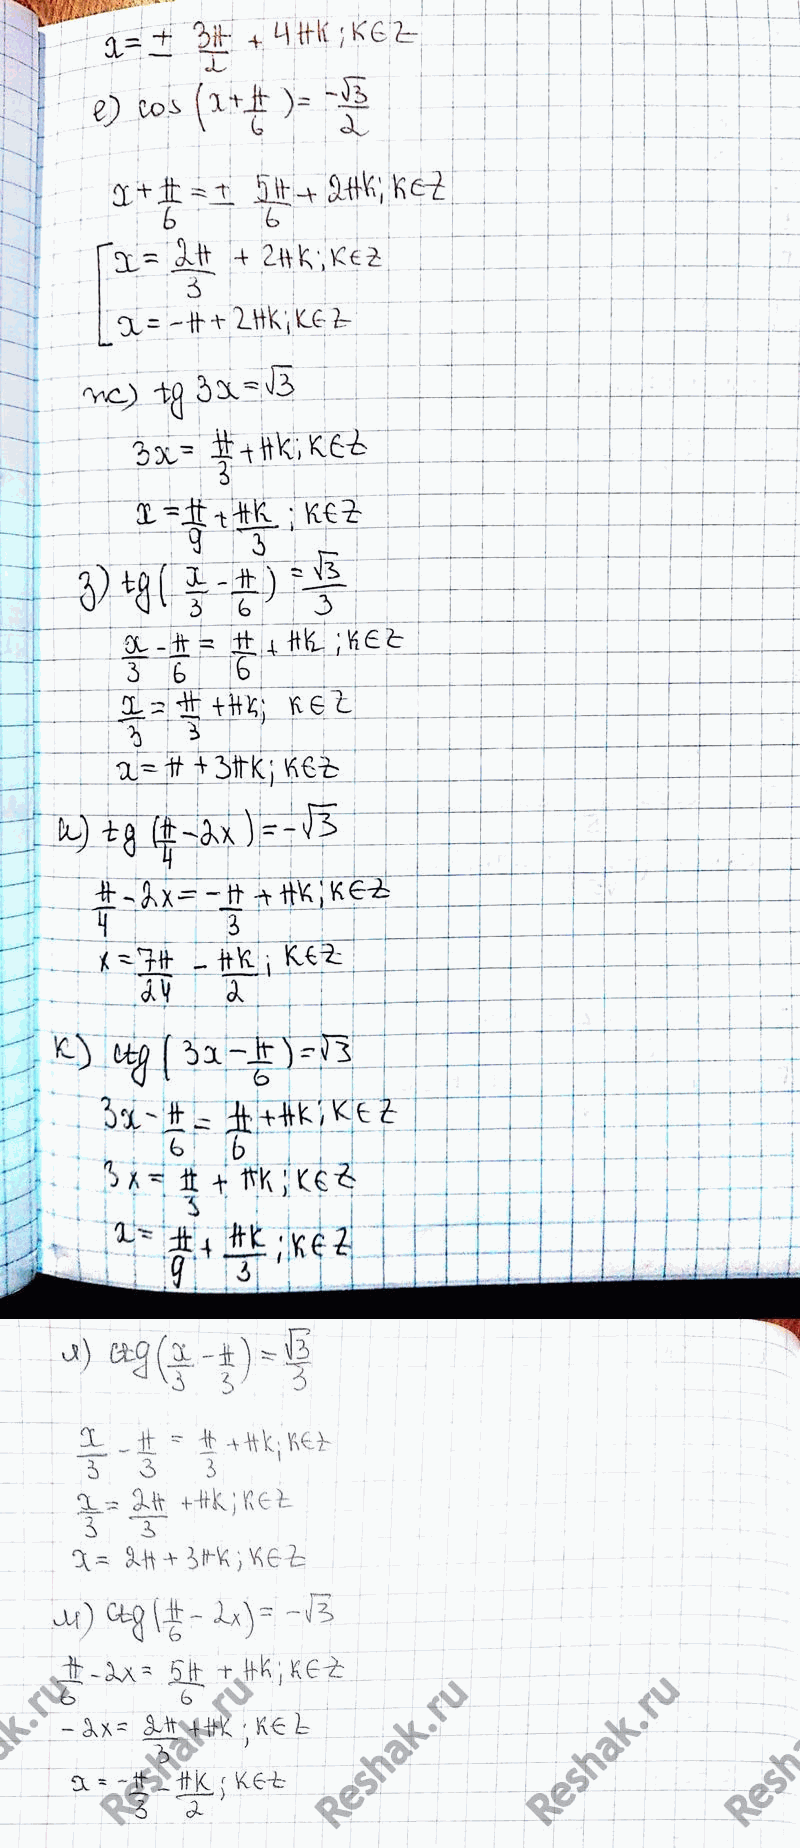 x = ± 3π/2 + 4πk; k∈Z
е) cos (x + π/6) = -√3/2
x + π/6 = ± 5π/6 + 2πk; k∈Z
[ x = 2π/3 + 2πk; k∈Z
x = -π + 2πk; k∈Z
ж) tg 3x = √3
3x = π/3 + πk; k∈Z
x = π/9 + πk/3; k∈Z
з) tg (x/3 - π/6) = √3/3
x/3 - π/6 = π/6 + πk; k∈Z
x/3 = π/3 + πk; k∈Z
x = π + 3πk; k∈Z
и) tg (π/4 - 2x) = -√3
π/4 - 2x = -π/3 + πk; k∈Z
x = 7π/24 - πk/2; k∈Z
к) ctg (3x - π/6) = √3
3x - π/6 = π/6 + πk; k∈Z
3x = π/3 + πk; k∈Z
x = π/9 + πk/3; k∈Z
л) ctg (x/3 - π/3) = √3/3
x/3 - π/3 = π/3 + πk; k∈Z
x/3 = 2π/3 + πk; k∈Z
x = 2π + 3πk; k∈Z
м) ctg (π/6 - 2x) = -√3
π/6 - 2x = 5π/6 + πk; k∈Z
-2x = 2π/3 + πk; k∈Z
x = -π/3 - πk/2; k∈Z
Reshak.ru
Reshak.ru
Reshak.ru